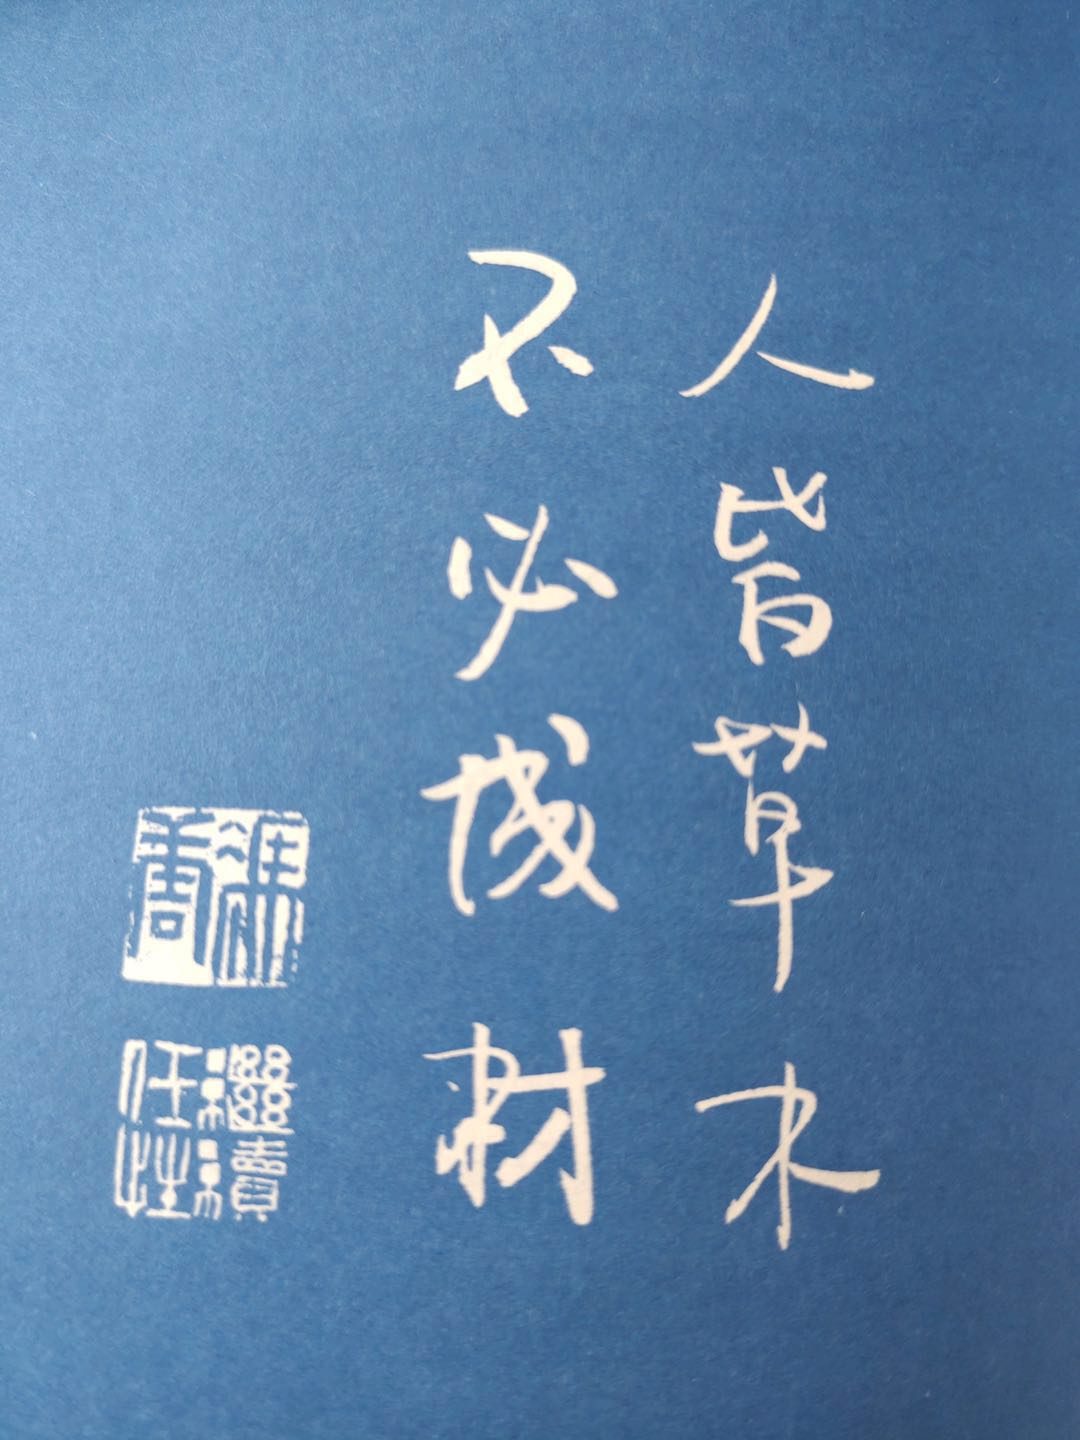 人皆草木
不必成材
馮唐
繼續
任性